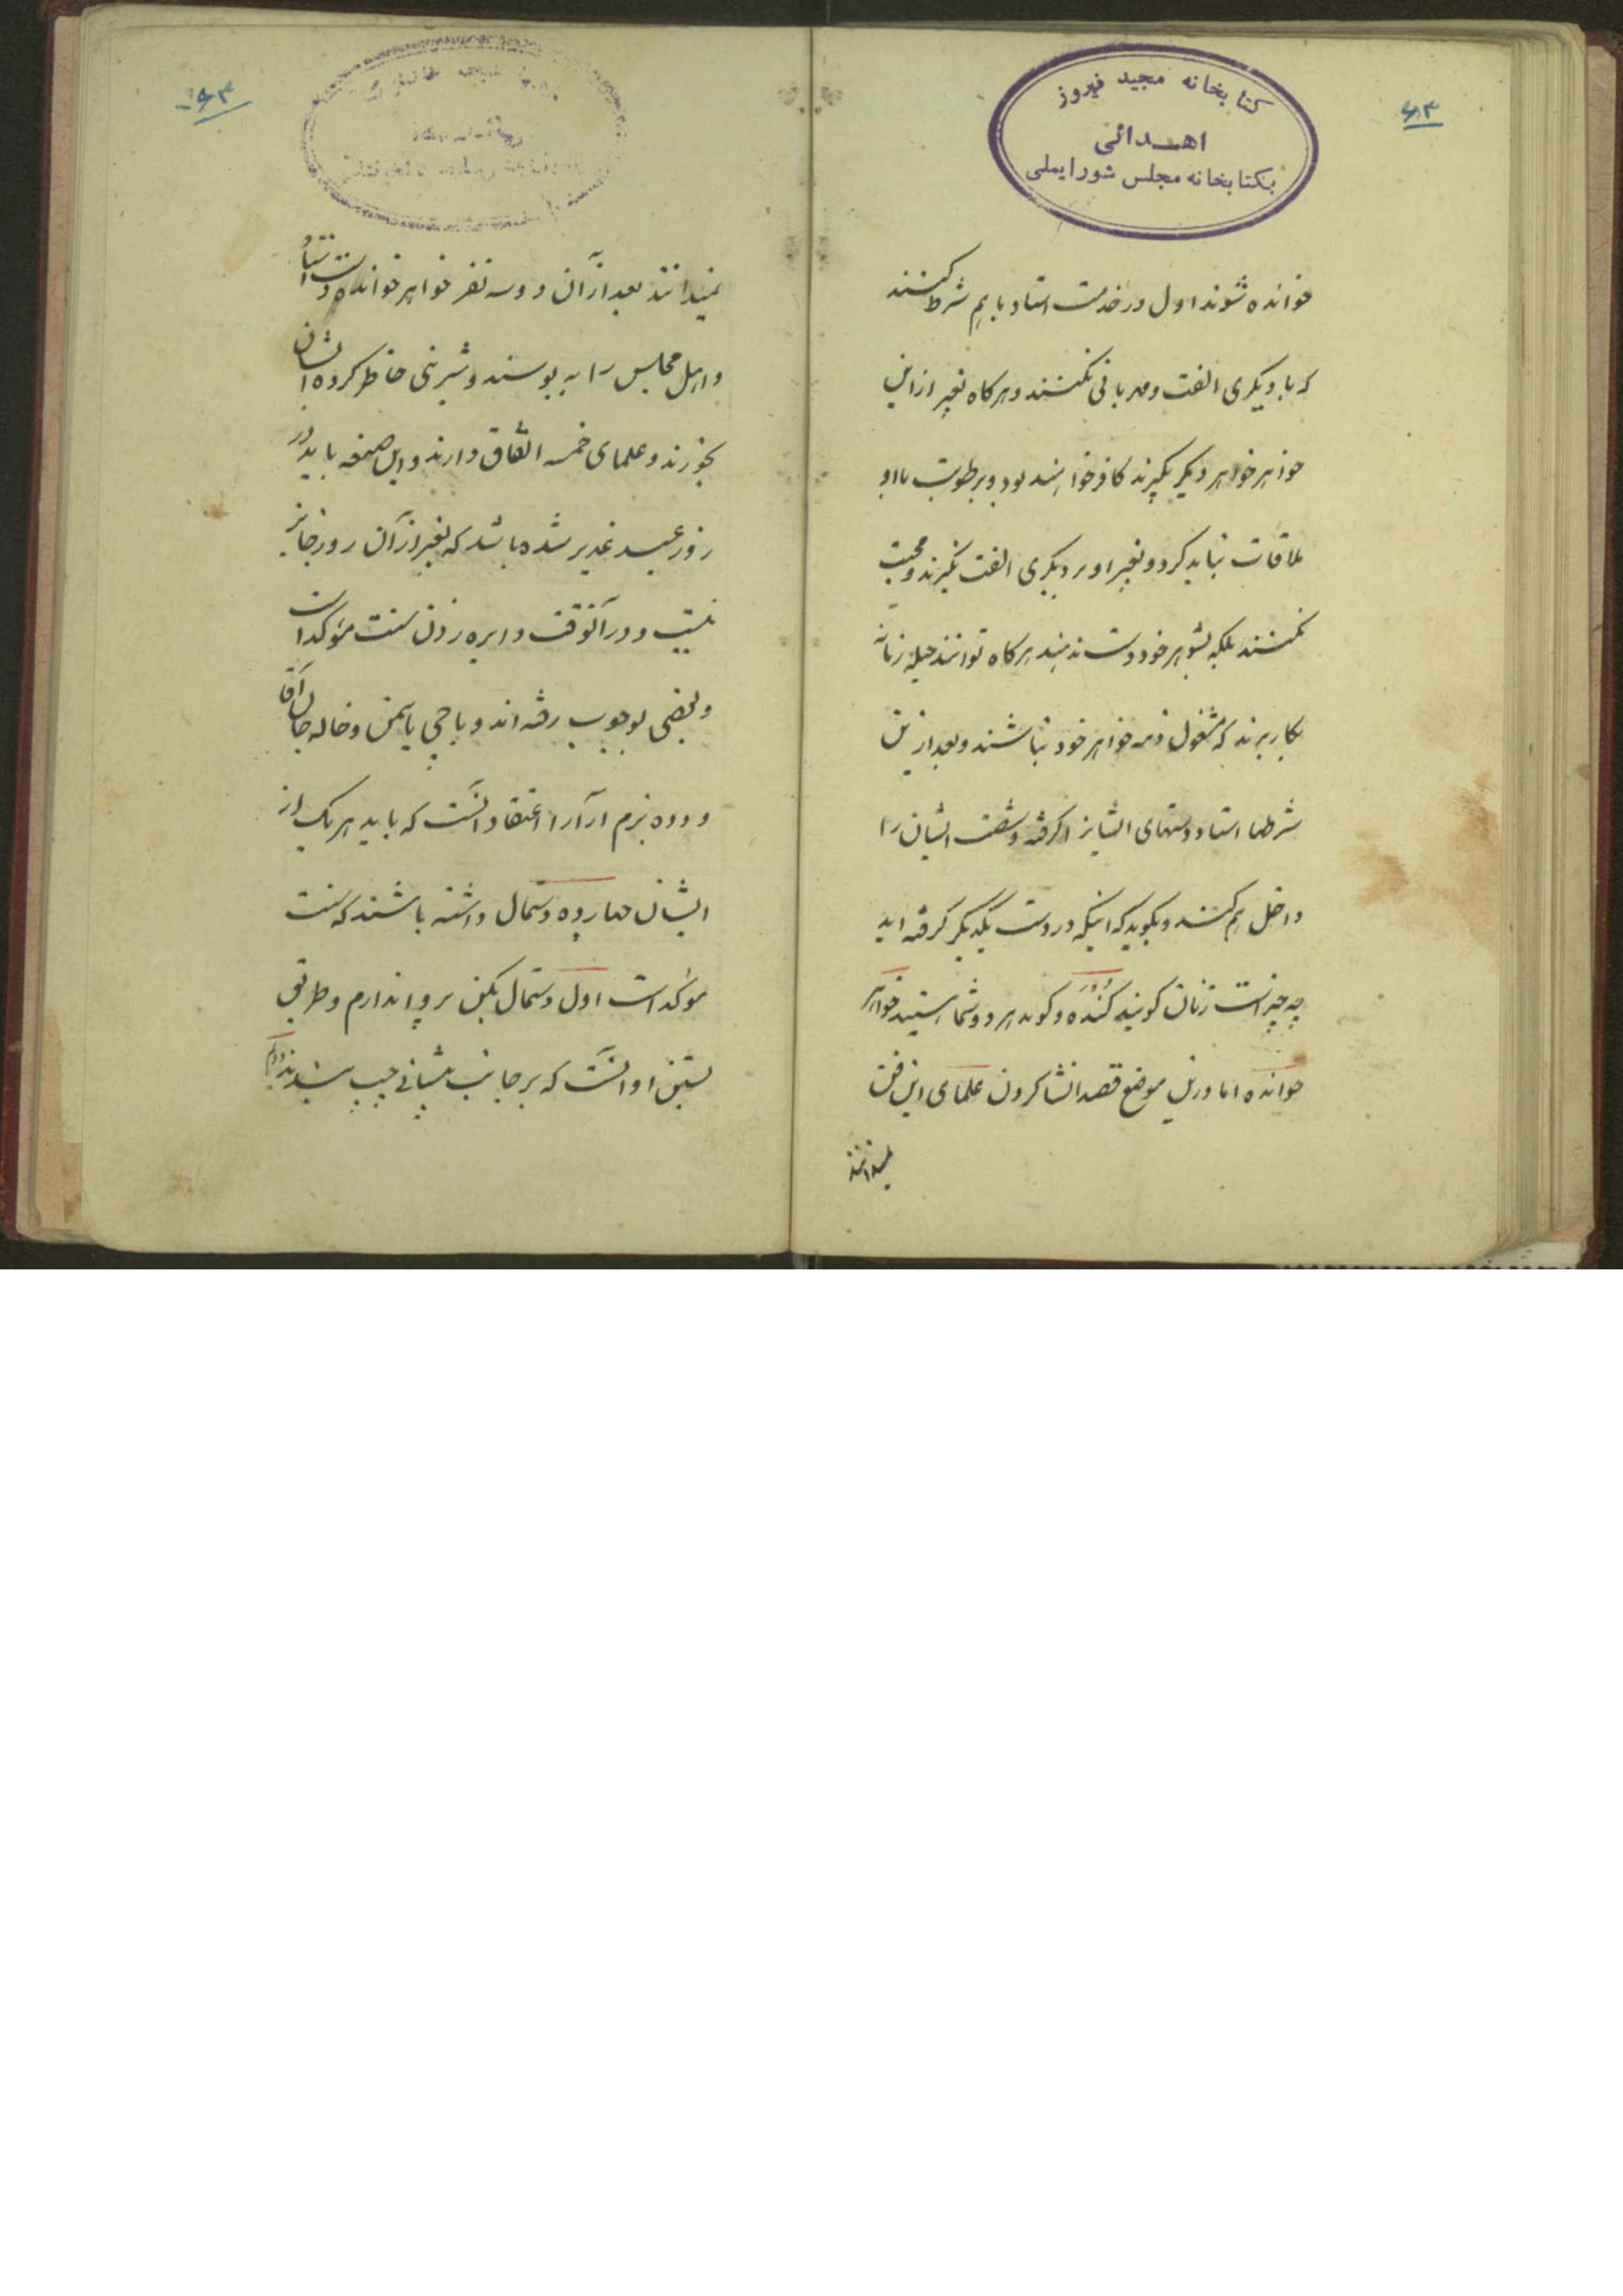 ۶۳
کتابخانه مجید فیروز
اهدائی
بکتابخانه مجلس شورایملی
خوانده شوند اول در خدمت استاد با هم شرط کنند
که با دیگری الفت و مهربانی نکنند و هرگاه بغیر از این
خواهر خواهر دیگر بگیرند کافر خواهند بود و برطوبت با او
ملاقات نباید کرد و بغیر او بر دیگری الفت نگیرند و محبت
نکنند بلکه بشوهر خود دست ندهند هرکاه توانند حیله زنانه
بکار برند که مشغول ذمه خواهر خود نباشند و بعد از این
شرطها استاد دستهای ایشانرا گرفته و شصت ایشان را
داخل هم کنند و بگوید که اینکه در دست یکدیگر گرفته اید
چه چیز است زنان گویند کنده و گوید هر دو شما هستید خواهر
خوانده اما در این موضع قصد انشا کردن علمای این فن
نمیدانند
۶۴
نمیدانند بعد از آن دو سه نفر خواهر خوانده دست استاد
و اهل مجلس را به بوسند و شیرینی حاضر کرده ایشان
بخورند و علمای خمسه اتفاق دارند و این صیغه باید در
روز عید غدیر شده باشد که بغیر از آن روز جایز
نیست و در آنوقت دایره زدن سنت مؤکد است
و بعضی بوجوب رفته اند و باجی یاسمن و خاله جان آقا
و دده بزم آرا را اعتقاد آنست که باید هر یک از
ایشان چهارده دستمال داشته باشند که سنت
مؤکد است اول دستمال یکن پروا ندارم و طریق
بستن او آنست که بر جانب پیشانی چپ بندند دویم